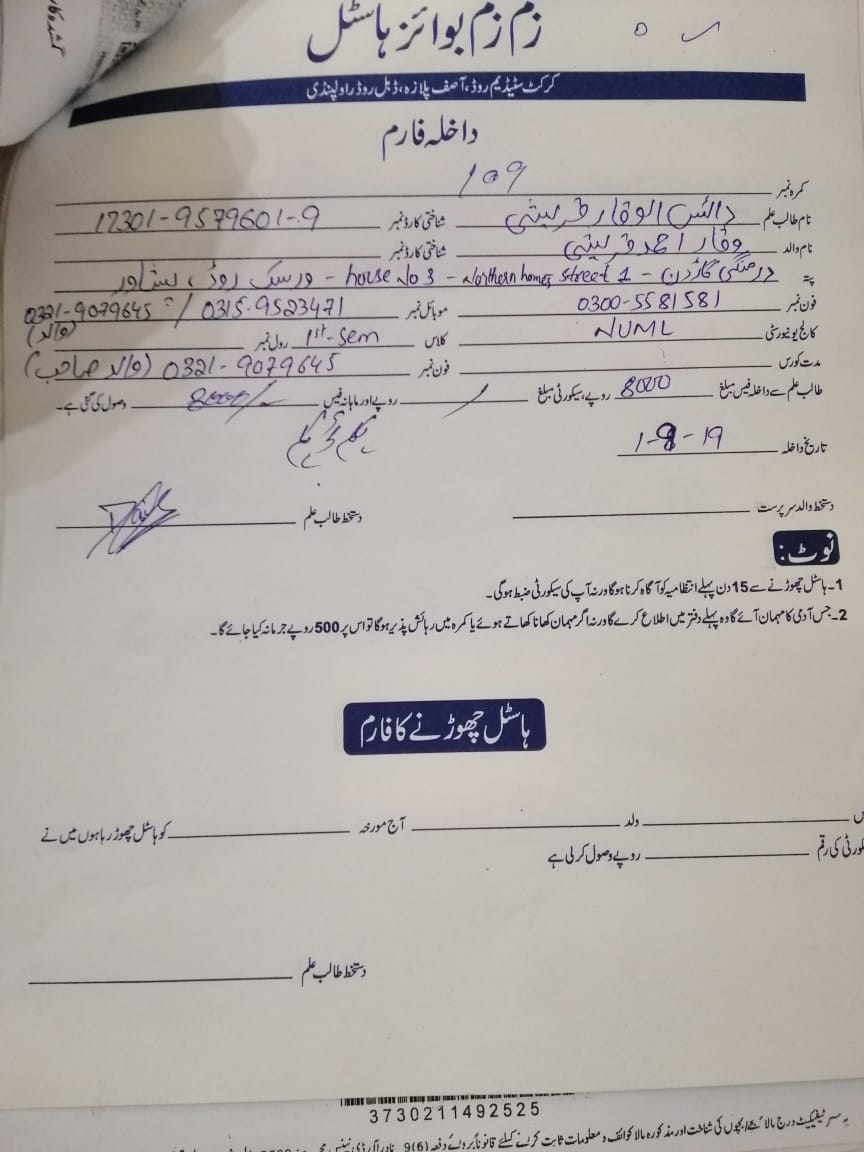 زم زم بوائز ہاسٹل
کرکٹ سٹیڈیم روڈ، آصف پلازہ، ڈبل روڈ راولپنڈی
داخلہ فارم
کمرہ نمبر 109
نام طالب علم دانش الوقار قریشی شناختی کارڈ نمبر 17301-9579601-9
نام والد وقار احمد قریشی شناختی کارڈ نمبر
پتہ درمنگی گارڈن - house No 3 - Northern homes, Street 1 - ورسک روڈ، پشاور
فون نمبر 0300-5581581 موبائل نمبر 0315-9523471 / 0321-9079645 (والد)
کالج یونیورسٹی NUML کلاس 1st-Sem رول نمبر
مدت کورس فون نمبر 0321-9079645 (والد صاحب)
طالب علم سے داخلہ فیس مبلغ 8000 روپے، سیکورٹی مبلغ / روپے اور ماہانہ فیس 8000/- وصول کی گئی ہے۔
تاریخ داخلہ 1-8-19
دستخط والد سرپرست دستخط طالب علم
نوٹ:
1۔ ہاسٹل چھوڑنے سے 15 دن پہلے انتظامیہ کو آگاہ کرنا ہوگا ورنہ آپ کی سیکورٹی ضبط ہوگی۔
2۔ جس آدمی کا مہمان آئے گا وہ پہلے دفتر میں اطلاع کرے گا ورنہ اگر مہمان کھانا کھاتے ہوئے یا کمرہ میں رہائش پذیر ہوگا تو اس پر 500 روپے جرمانہ کیا جائے گا۔
ہاسٹل چھوڑنے کا فارم
ولد آج مورخہ کو ہاسٹل چھوڑ رہا ہوں میں نے
کورٹی کی رقم روپے وصول کر لی ہے
دستخط طالب علم
3730211492525
یہ سرٹیفکیٹ درج بالا بچے/بچوں کی شناخت اور مذکورہ بالا کوائف و معلومات ثابت کرنے کیلئے قانوناً بروئے دفعہ 9(6)